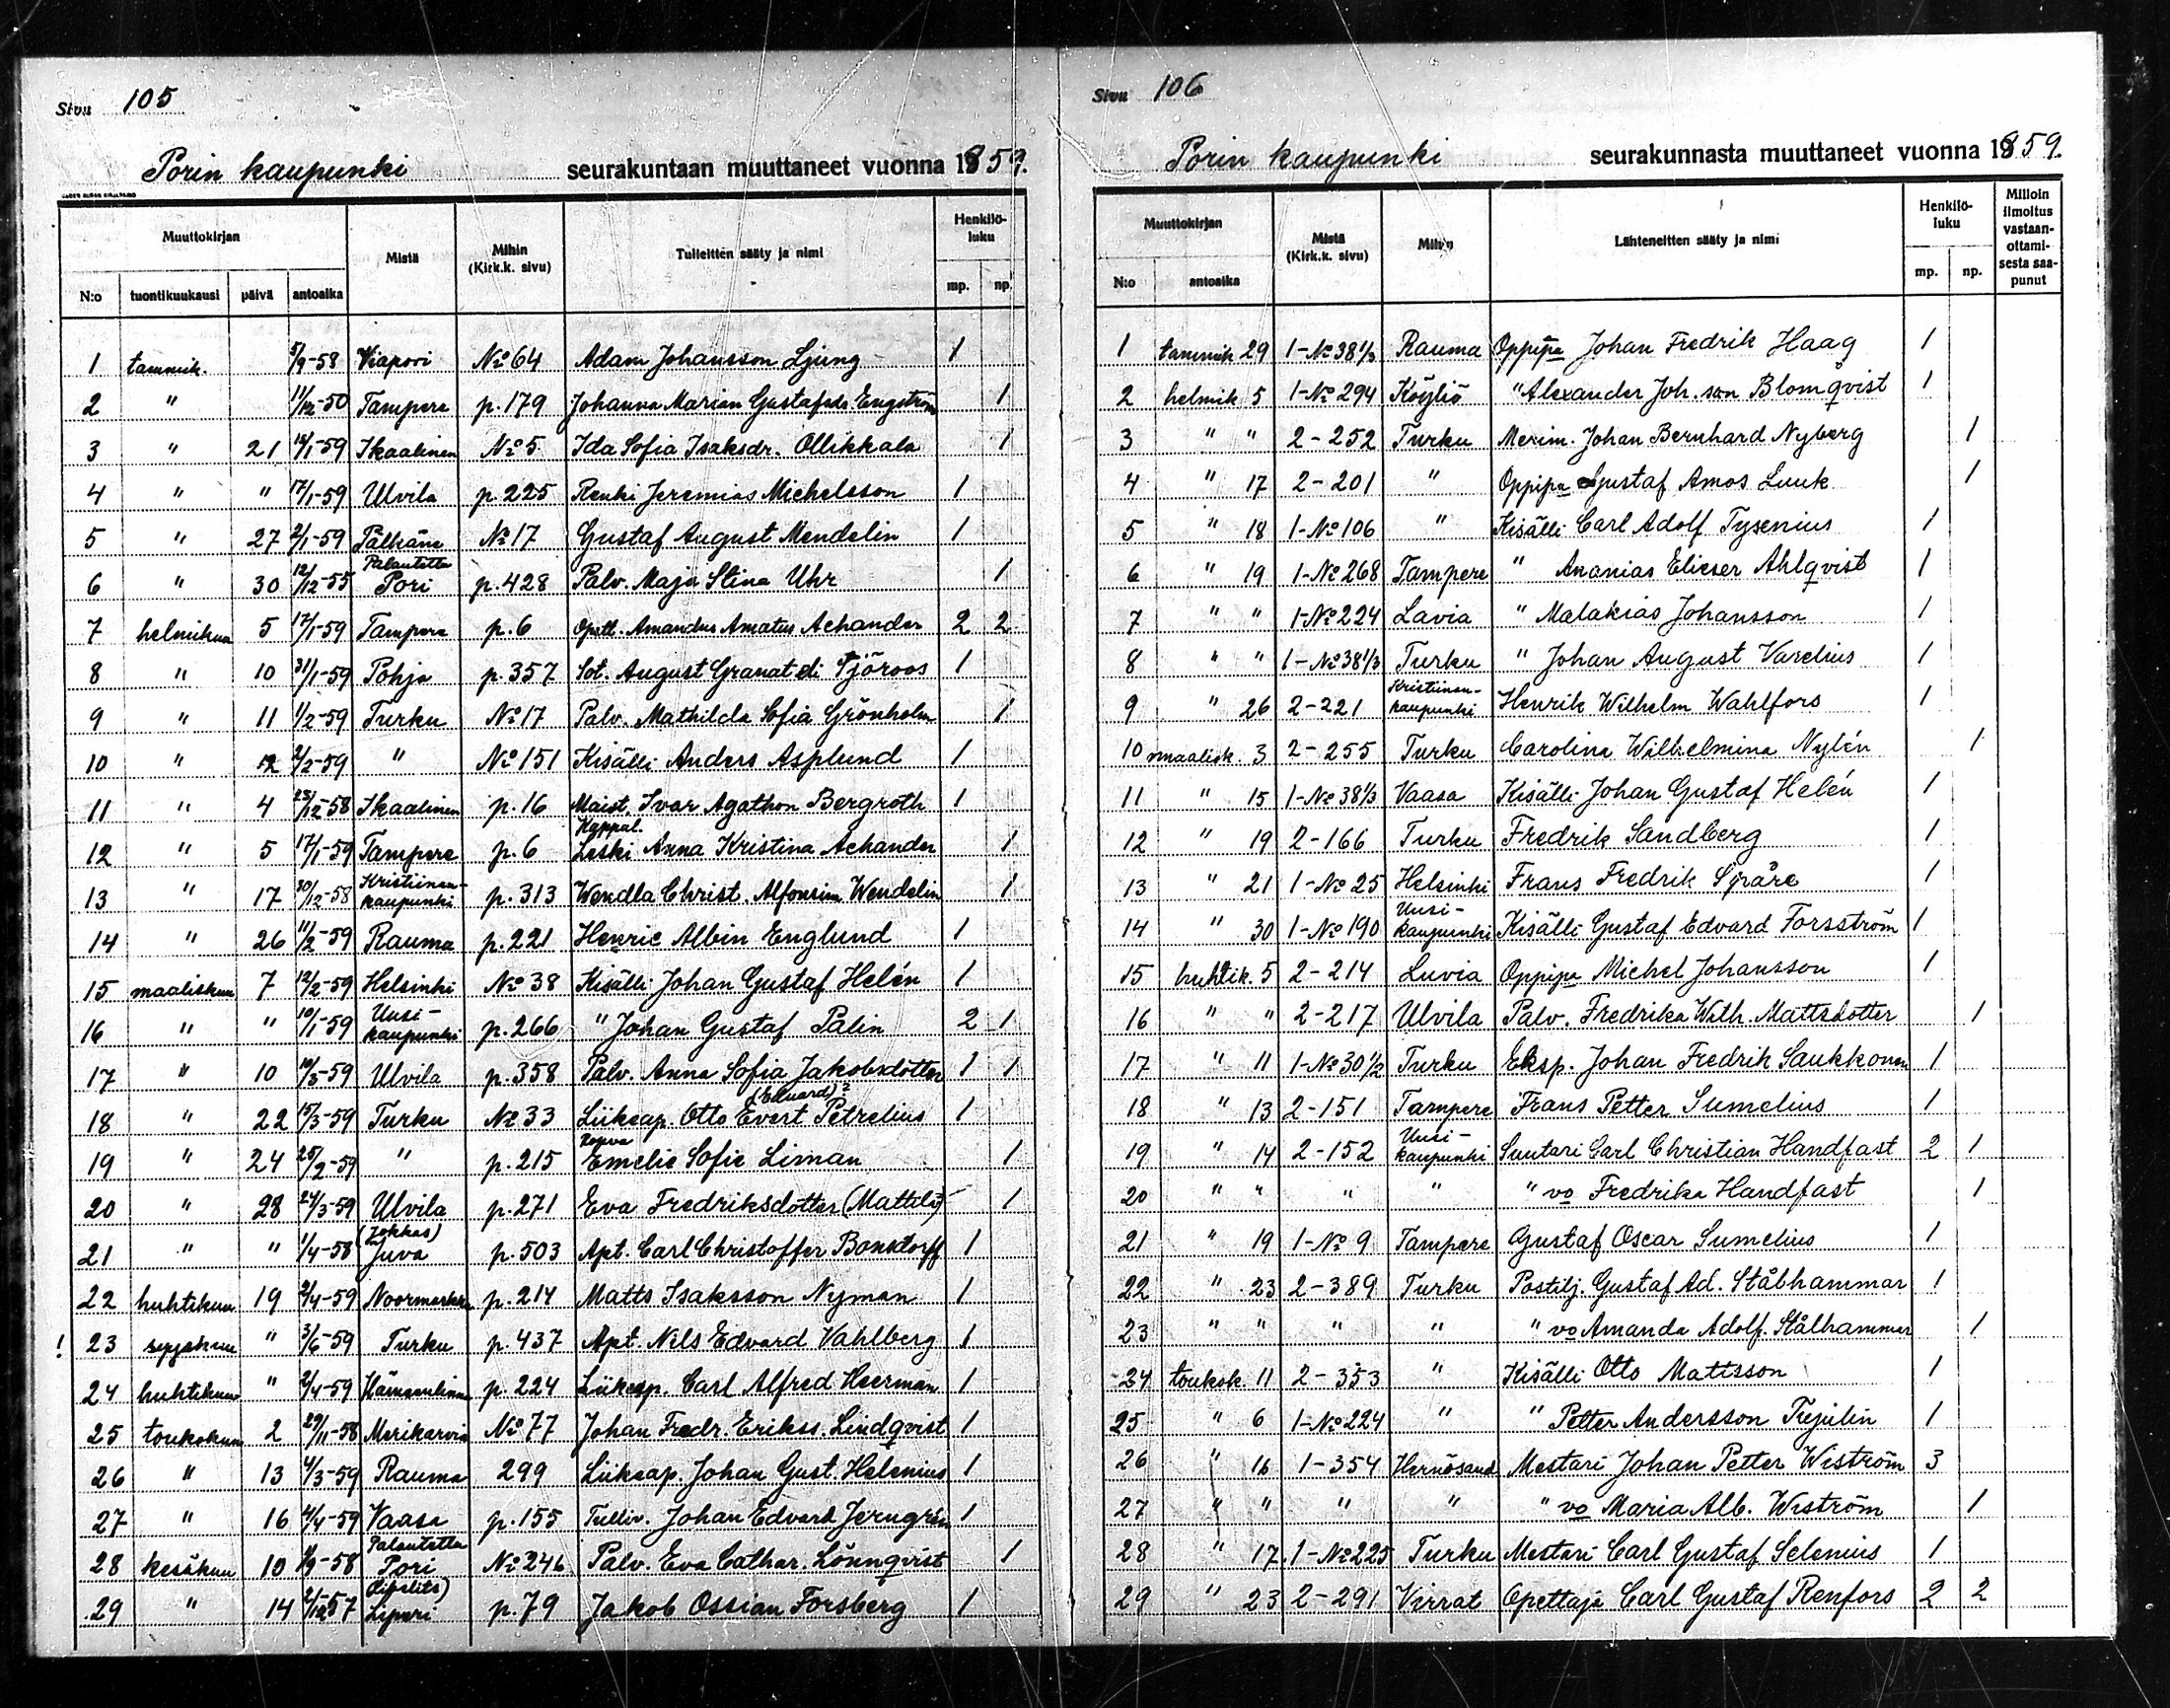 Sivu 105
Porin kaupunki seurakuntaan muuttaneet vuonna 1859.
Muuttokirjan Mistä Mihin (Kirk.k. sivu) Tulleitten sääty ja nimi Henkilöluku
N:o tuontikuukausi päivä antoaika mp. np.
1 tammik. 5/9-58 Viapori No 64 Adam Johansson Ljung 1
2 " 11/12-50 Tampere p. 179 Johanna Marian Gustafsdr. Engström 1
3 " 21 15/1-59 Ikaalinen No 5 Ida Sofia Isaksdr. Ollikkala 1
4 " " 17/1-59 Ulvila p. 225 Renki Jeremias Michelsson 1
5 " 27 2/1-59 Pälkäne No 17 Gustaf August Mendelin 1
6 " 30 12/12-55 Palautettu Pori p. 428 Palv. Maja Stina Uhr 1
7 helmikuu 5 17/1-59 Tampere p. 6 Opett. Amandus Amatus Achander 2 2
8 " 10 31/1-59 Pohja p. 357 Sot. August Granat eli Sjöroos 1
9 " 11 1/2-59 Turku No 17 Palv. Mathilda Sofia Grönholm 1
10 " 12 2/2-59 " No 151 Kisälli Anders Asplund 1
11 " 4 23/12-58 Ikaalinen p. 16 Maist. Ivar Agathon Bergroth 1
12 " 5 17/1-59 Tampere p. 6 Kappal. Leski Anna Kristina Achander 1
13 " 17 30/12-58 Kristiinankaupunki p. 313 Wendla Christ. Alfonsina Wendelin 1
14 " 26 11/2-59 Rauma p. 221 Henric Albin Englund 1
15 maaliskuu 7 12/2-59 Helsinki No 38 Kisälli Johan Gustaf Helén 1
16 " " 10/1-59 Uusikaupunki p. 266 " Johan Gustaf Palin 2 1
17 " 10 10/3-59 Ulvila p. 358 Palv. Anna Sofia Jakobsdotter 1 1
18 " 22 15/3-59 Turku No 33 Liikeap. Otto Evert (Eduard)? Petrelius 1
19 " 24 25/2-59 " p. 215 Emelie Sofie Liman 1
20 " 28 24/3-59 Ulvila p. 271 Eva Fredriksdotter (Mattila) 1
21 " " 1/4-58 (Jokkas) Juva p. 503 Apt. Carl Christoffer Bonsdorff 1
22 huhtikuu 19 2/4-59 Noormarkku p. 214 Matts Isaksson Nyman 1
! 23 syyskuu " 3/6-59 Turku p. 437 Apt. Nils Edvard Vahlberg 1
24 huhtikuu " 2/4-59 Hämeenlinna p. 224 Liikeap. Carl Alfred Heerman 1
25 toukokuu 2 29/11-58 Merikarvia No 77 Johan Fredr. Erikss. Lindqvist 1
26 " 13 4/3-59 Rauma 299 Liikeap. Johan Gust. Helenius 1
27 " 16 4/4-59 Vaasa p. 155 Tulliv. Johan Edvard Jerngrén 1
28 kesäkuu 10 1/9-58 Palautettu Pori No 246 Palv. Eva Cathar. Lönnqvist 1
29 " 14 2/12-57 Liperi p. 79 Jakob Ossian Forsberg 1
Sivu 106
Porin kaupunki seurakunnasta muuttaneet vuonna 1859.
Muuttokirjan Mistä (Kirk.k. sivu) Mihin Lähteneitten sääty ja nimi Henkilöluku Milloin ilmoitus vastaanottamisesta saapunut
N:o antoaika mp. np.
1 tammik 29 1-No 38 1/3 Rauma Oppipa Johan Fredrik Haag 1
2 helmik 5 1-No 294 Köyliö " Alexander Joh.son Blomqvist 1
3 " " 2-252 Turku Merim. Johan Bernhard Nyberg 1
4 " 17 2-201 " Oppipa Gustaf Amos Luuk 1
5 " 18 1-No 106 " Kisälli Carl Adolf Tysenius 1
6 " 19 1-No 268 Tampere " Ananias Elieser Ahlqvist 1
7 " " 1-No 224 Lavia " Malakias Johansson 1
8 " " 1-No 38 1/3 Turku " Johan August Varelius 1
9 " 26 2-221 Kristiinankaupunki Henrik Wilhelm Wahlfors 1
10 maalisk. 3 2-255 Turku Carolina Wilhelmina Nylén 1
11 " 15 1-No 38 1/3 Vaasa Kisälli Johan Gustaf Helén 1
12 " 19 2-166 Turku Fredrik Sandberg 1
13 " 21 1-No 25 Helsinki Frans Fredrik Spåre 1
14 " 30 1-No 190 Uusikaupunki Kisälli Gustaf Edvard Forsström 1
15 huhtik. 5 2-214 Luvia Oppipa Michel Johansson 1
16 " " 2-217 Ulvila Palv. Fredrika Wilh. Mattsdotter 1
17 " 11 1-No 30 1/2 Turku Eksp. Johan Fredrik Saukkonen 1
18 " 13 2-151 Tampere Frans Petter Sumelius 1
19 " 14 2-152 Uusikaupunki Suutari Carl Christian Handfast 2 1
20 " " " " " vo Fredrika Handfast 1
21 " 19 1-No 9 Tampere Gustaf Oscar Sumelius 1
22 " 23 2-389 Turku Postilj. Gustaf Ad. Stålhammar 1
23 " " " " " vo Amanda Adolf. Stålhammar 1
24 toukok. 11 2-353 " Kisälli Otto Matisson 1
25 " 6 1-No 224 " " Petter Andersson 1
26 " 16 1-354 Hernösand Mestari Johan Petter Wiström 3
27 " " " " " vo Maria Alb. Wiström 1
28 " 17 1-No 225 Turku Mestari Carl Gustaf Selenius 1
29 " 23 2-291 Virrat Opettaja Carl Gustaf Renfors 2 2